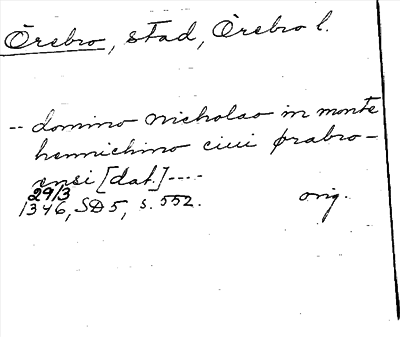 Örebro, stad, Örebro l.
-- domino nicholao in monte
hennichino ciui ørabro-
ensi [dat.] ----
29/3
1346, SD 5, s. 552. orig.